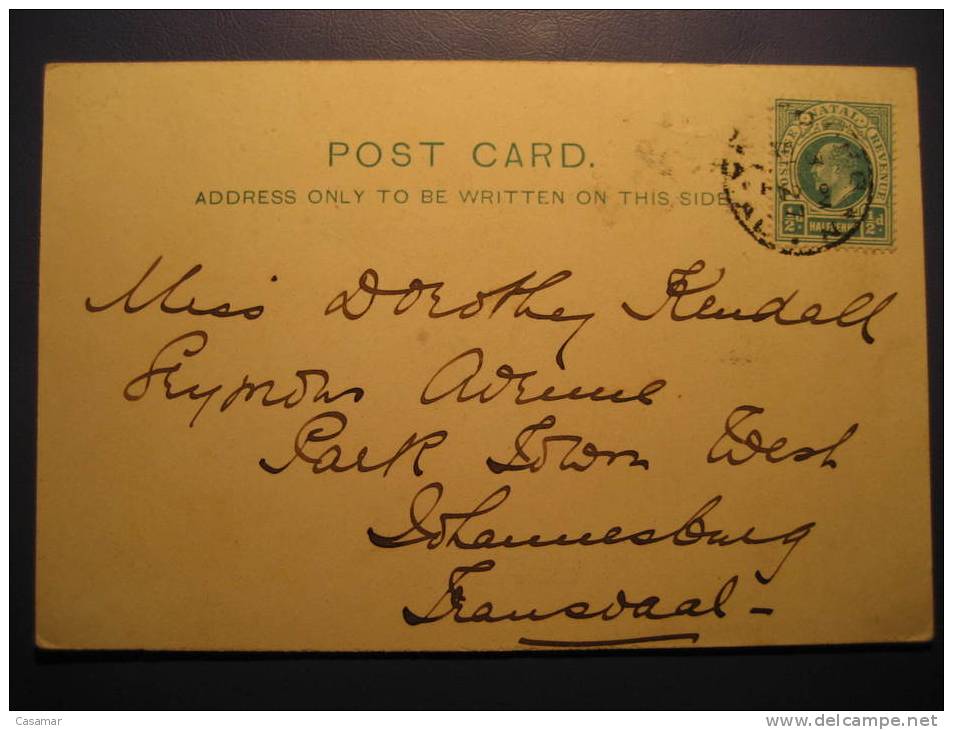 POST CARD.
ADDRESS ONLY TO BE WRITTEN ON THIS SIDE
NATAL
POSTAGE REVENUE
½d HALFPENNY ½d
Miss Dorothy Kendall
Seymour Avenue
Park Town West
Johannesburg
Transvaal -
Casamar
www.delcampe.net